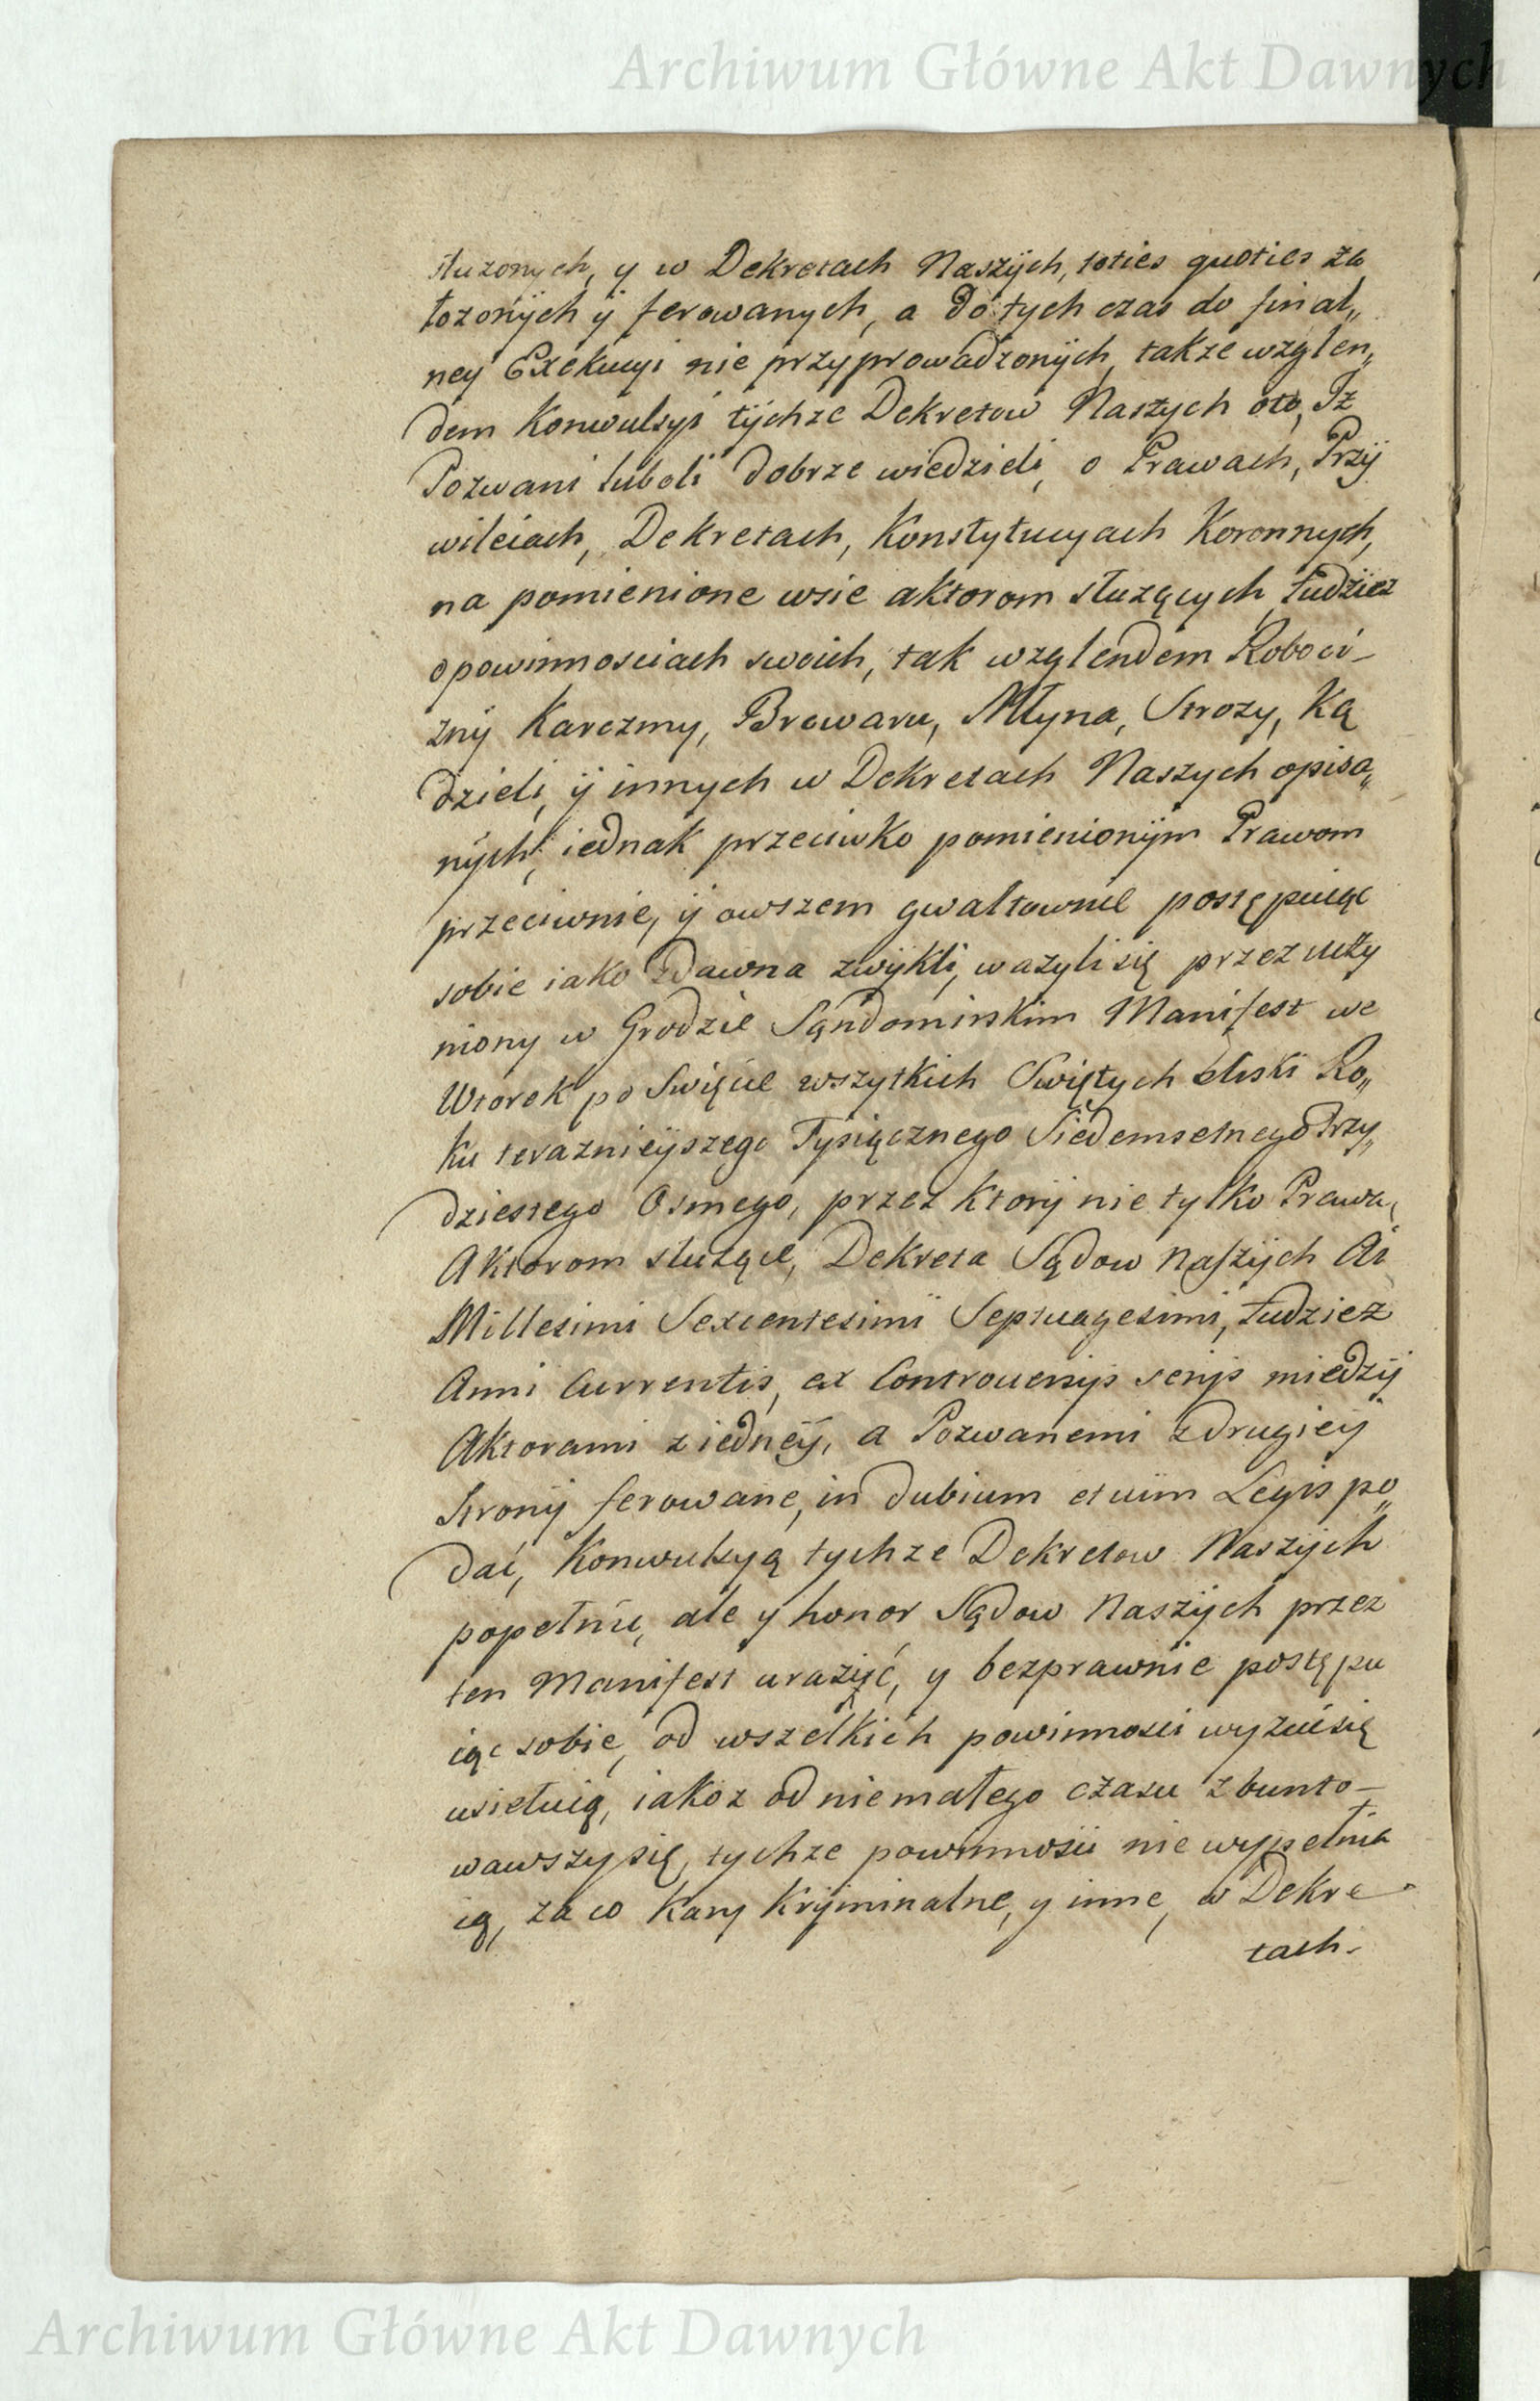 Archiwum Główne Akt Dawnych
słuzonych, y w Dekretach Naszÿch, toties quoties za
łozonÿch ÿ ferowanych, a do tych czas do final„
ney Exekucyi nie przyprowadzonÿch, takze wzglen„
dem Konwulsyi tÿchze Dekretow Naszych oto, Iz
Pozwani luboli dobrze wiedzieli, o Prawach, Przÿ
wileiach, Dekretach, Konstytucyach Koronnych,
na pomienione wsie aktorom słuzących, tudziesz
opowinnosciach swoich, tak wzglendem Roboci-
znÿ Karczmy, Browaru, Młyna, Strozy, Ką
dzieli, ÿ innych w Dekretach Naszych opisa„
nÿch, iednak przeciwko pomienionÿm Prawom
przeciwnie, ÿ owszem gwałtownie postępuiąc
sobie iako zdawna zwÿkli, wazyli się przez uczy
niony w Grodzie Sąndomirskim Manifest we
Wtorek po Swięcie wszytkich Swiętych bliski Ro„
ku terazniejszego Tysiącznego Siedemsetnego Trzy„
dziestego Osmego, przez ktorÿ nie tylko Prawa,
Aktorom słuzące, Dekreta Sądow naszÿch Ai
Millesimi Sexcentesimi Septuagesimi, tudziez
Anni Currentis, ex Controuersÿs serijs miedzÿ
Aktorami z iedneÿ, a Pozwanemi z drugieÿ
stronÿ ferowane, in dubium et uim Legis po„
dać, Konwulsyą tychze Dekretow Naszÿch
popełnic, ale y honor Sądow Naszÿch przez
ten Manifest urazÿć, y bezprawnie postępu
iąc sobie, od wszelkich powinnosci wyzuć się
usiełuią, iakoz od niemałego czasu zbunto-
wawszy się, tychze powinnosci nie wypełnia
ią, za co Kary Krÿminalne, y inne, w Dekre-
tach.
Archiwum Główne Akt Dawnych